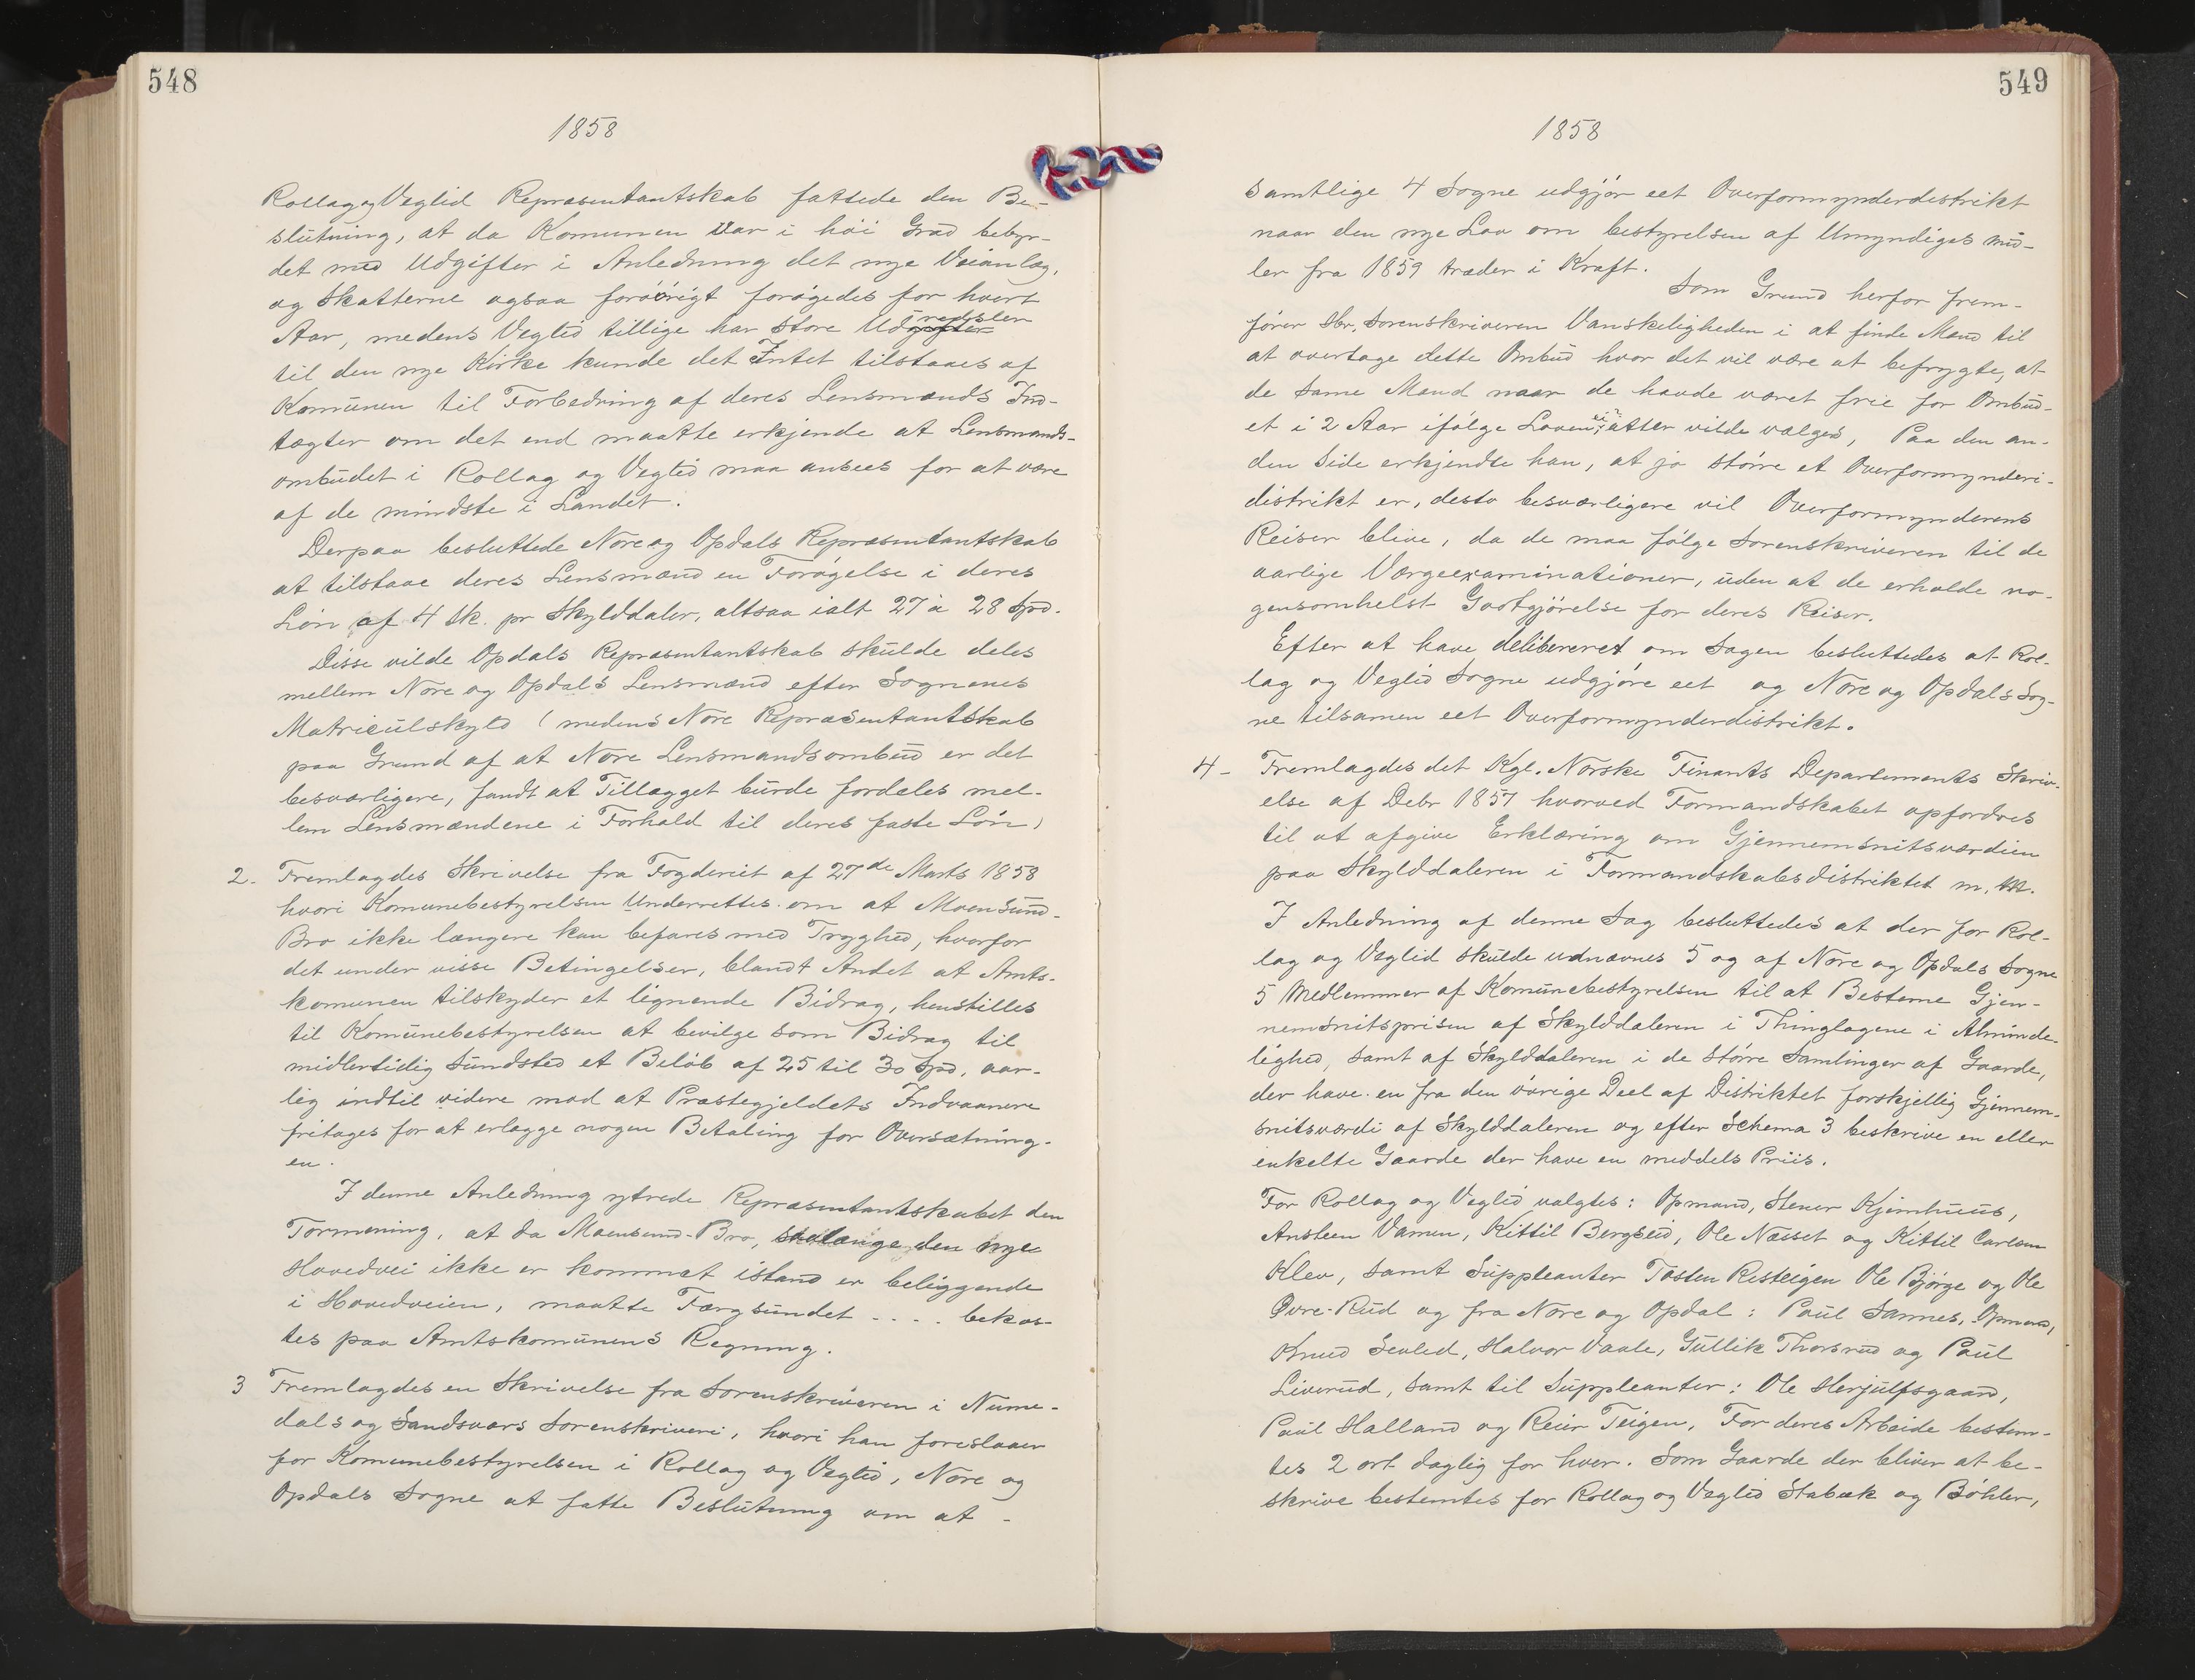 548
1858
Rollag og Veglid Repræsentantskab fattede den Be-
slutning, at da Komunen var i höi Grad bebyr-
det med Udgifter i Anledning det nye Veianlæg,
og Skatterne ogsaa forövrigt forögedes for hvert
Aar, medens Veglid tillige har store Udgifter redsler
til den nye Kirke kunde det Intet tilstaaes af
Komunen til Forbedring af deres Lensmands Ind-
tægter om det end maatte erkjende at Lensmands-
ombudet i Rollag og Veglid maa ansees for at være
af de mindste i Landet.
Derpaa besluttede Nore og Opdals Repræsentantskab
at tilstaae deres Lensmænd en Forögelse i deres
Lön af 4 sk. pr Skylddaler, altsaa ialt 27 à 28 Spd.
Disse vilde Opdals Repræsentantskab skulde deles
mellem Nore og Opdals Lensmænd efter Sognenes
Matriculskyld (medens Nore Repræsentantskab
paa Grund af at Nore Lensmandsombud er det
besværligere, fandt at Tillægget burde fordeles mel-
lem Lensmændene i Forhold til deres faste Lön)
2. Fremlagdes Skrivelse fra Fogderiet af 27de Marts 1858
hvori Komunebestyrelsen Underrettes om at Moensund-
Bro ikke længere kan befares med Tryghed, hvorfor
det under visse Betingelser, blandt Andet at Amts-
komunen tilskyder et lignende Bidrag, henstilles
til Komunebestyrelsen at bevilge som Bidrag til
midlertidig Sundsted et Belöb af 25 til 30 Spd. aar-
lig indtil videre mod at Præstegjeldets Indvaanere
fritages for at erlægge nogen Betaling for Oversætning-
en.
I denne Anledning ytrede Repræsentantskabet den
Formening, at da Moensund-Bro, saalænge den nye
Hovedvei ikke er kommet istand er beliggende
i Hovedveien, maatte Færgsundet .... bekos-
tes paa Amtskomunens Regning.
3 Fremlagdes en Skrivelse fra Sorenskriveren i Nume-
dals og Sandsværs Sorenskriveri, hvori han foreslaaer
for Komunebestyrelsen i Rollag og Veglid, Nore og
Opdals Sogne at fatte Beslutning om at -
549
1858
samtlige 4 Sogne udgjör eet Overformynderdistrikt
naar den nye Lov om bestyrelsen af Umyndiges mid-
ler fra 1859 træder i Kraft.
Som Grund herfor frem-
förer Hr. Sorenskriveren Vanskeligheden i at finde Mænd til
at overtage dette Ombud hvor det vil være at befrygte, at
de same Mænd naar de havde været frie for Ombud-
et i 2 Aar ifölge Loven ei atter vilde vælges, Paa den an-
den Side erkjendte han, at jo större et Overformynderi-
distrikt er, desto besværligere vil Overformynderens
Reiser blive, da de maa fölge Sorenskriveren til de
aarlige Værgeexaminationer, uden at de erholde no-
gensomhelst Godtgjörelse for deres Reiser.
Efter at have delibereret om Sagen besluttedes at Rol-
lag og Veglid Sogne udgjöre eet og Nore og Opdals Sog-
ne tilsamen eet Overformynderdistrikt.
4- Fremlagdes det Kgl. Norske Finants Departements Skriv-
else af Debr 1857 hvorved Formandskabet opfordres
til at afgive Erklæring om Gjennemsnitsværdien
paa Skylddaleren i Formandskabsdistriktet m. m.
I Anledning af denne Sag besluttedes at der for Rol-
lag og Veglid skulde udnævnes 5 og af Nore og Opdals Sogne
5 Medlemmer af Komunebestyrelsen til at Besteme Gjen-
nemsnitsprisen af Skylddaleren i Thinglagene i Alminde-
lighed, samt af Skylddaleren i de större Samlinger af Gaarde,
der have en fra den övrige Deel af Distriktet forskjellig Gjennem-
snitsværdi af Skylddaleren og efter Schema 3 beskrive en eller
enkelte Gaarde der have en meddels Priis.
For Rollag og Veglid valgtes: Opmand, Stener Kjemhuus,
Ansteen Vamen, Kittil Bergseid, Ole Næsset og Kittil Carlsen
Klev, samt Suppleanter Tosten Risteigen Ole Bjørge og Ole
Øvre-Rud og fra Nore og Opdal: Paul Sannes, Opmand,
Knud Sevled, Halvor Vaale, Gullik Thorsrud og Paul
Liverud, samt til Suppleanter: Ole Herjulfsgaard,
Paul Halland og Reier Teigen, For deres Arbeide bestem-
tes 2 ort daglig for hver. Som Gaarde der bliver at be-
skrive bestemtes for Rollag og Veglid Stabæk og Böhler,